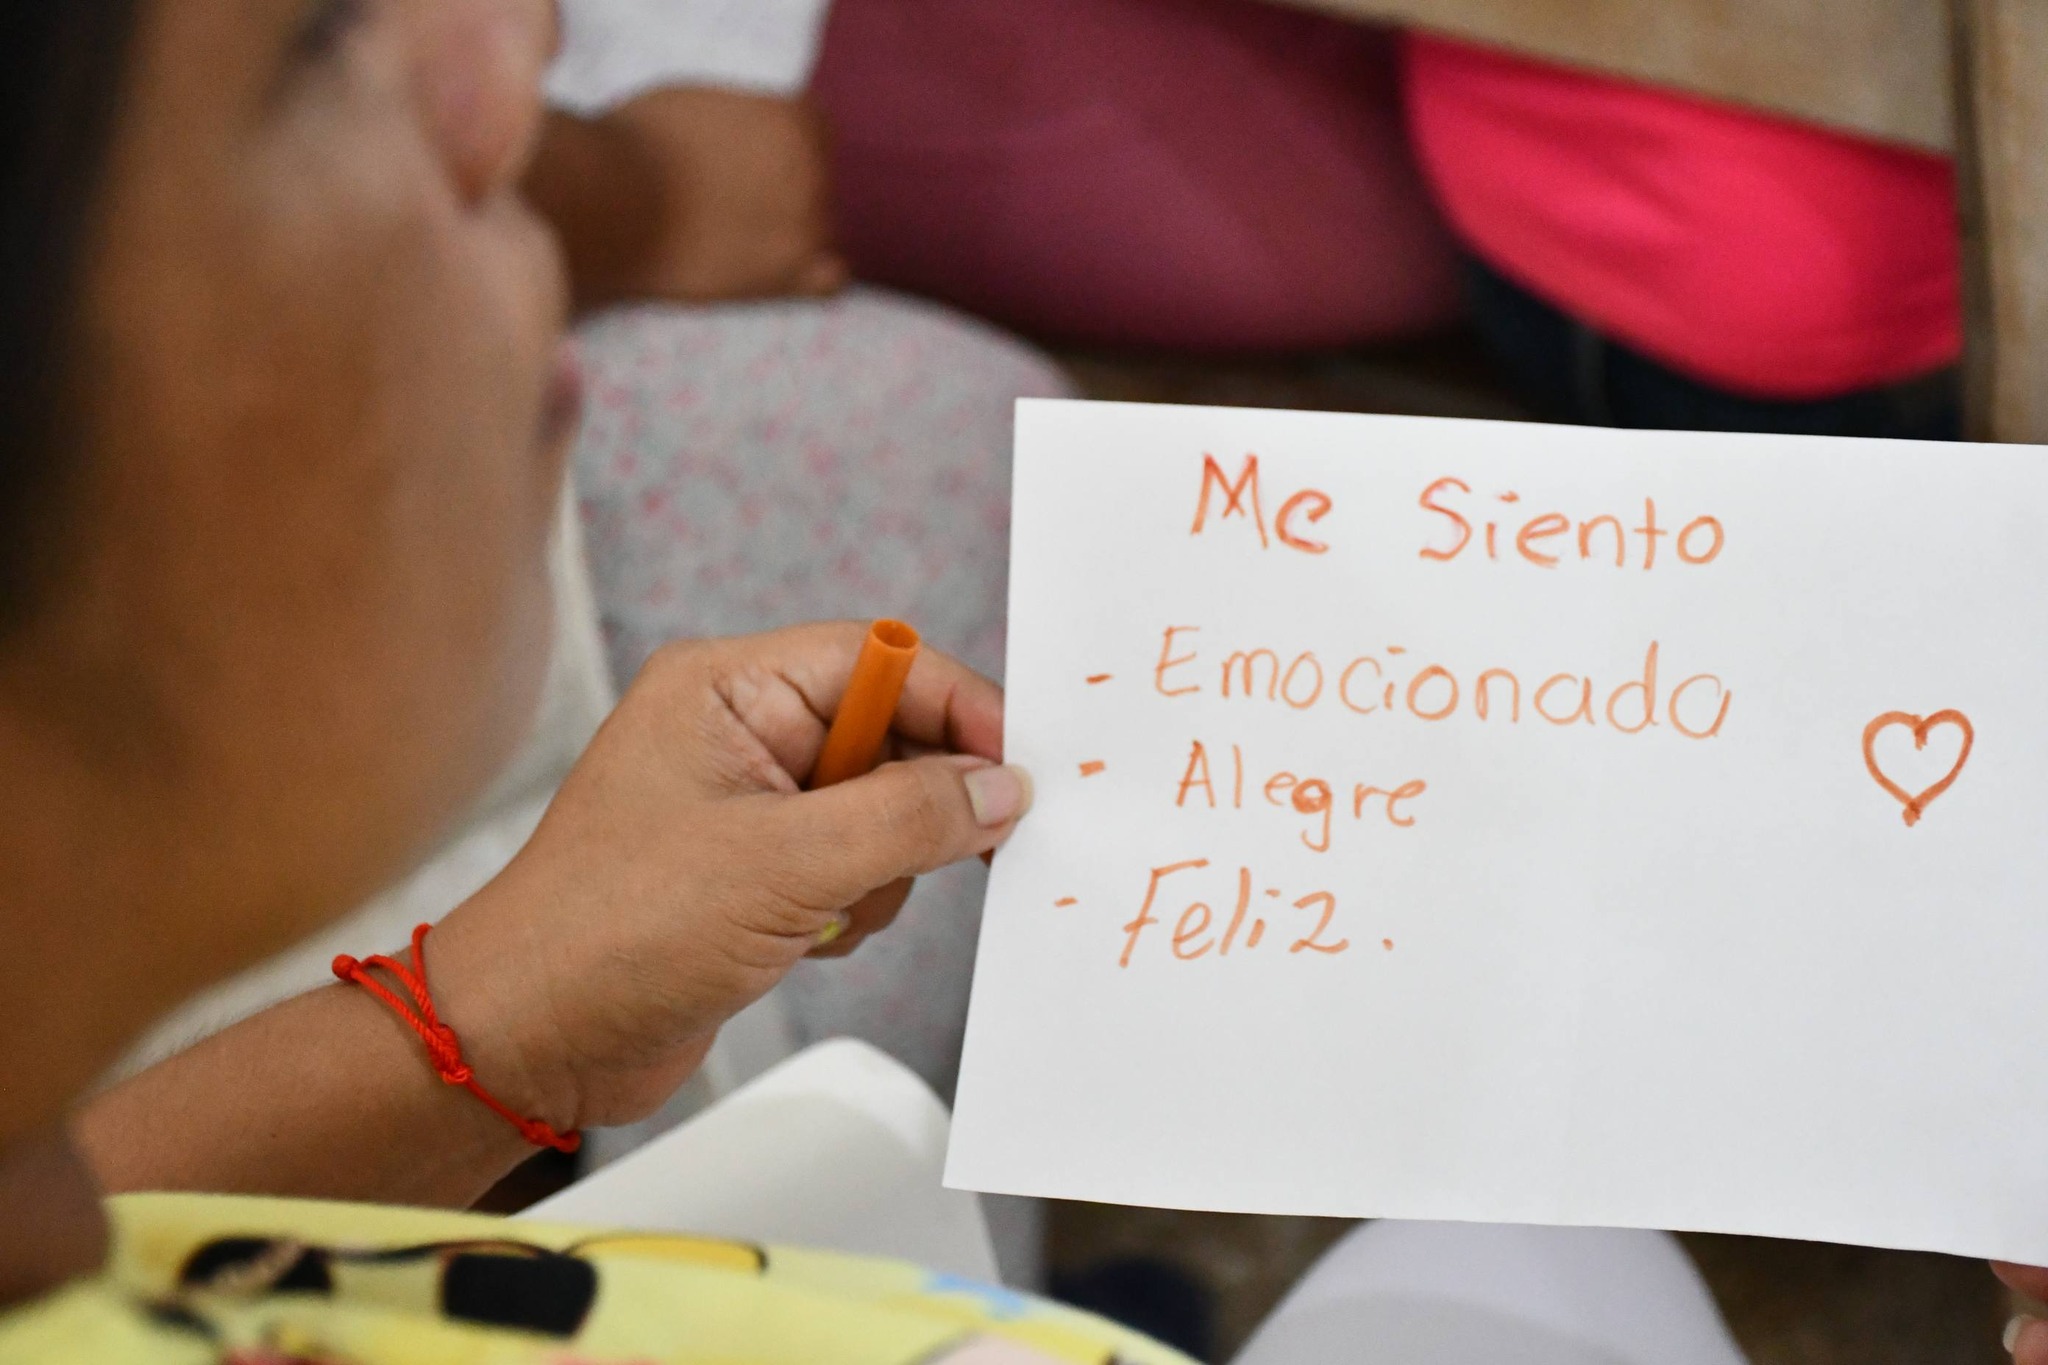 Me Siento
- Emocionada
- Alegre
- Feliz.